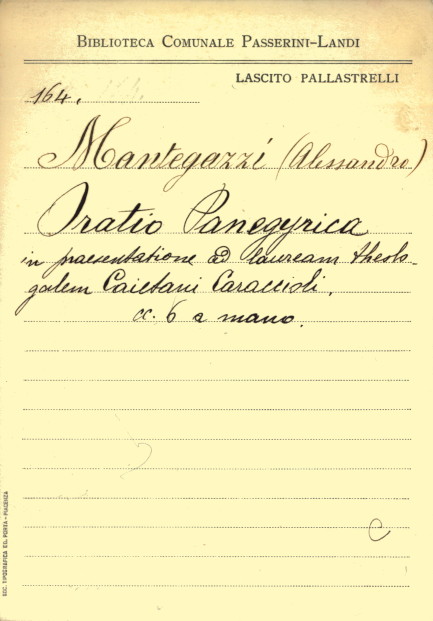 BIBLIOTECA COMUNALE PASSERINI-LANDI
LASCITO PALLASTRELLI
164.
Mantegazzi (Alessandro)
Oratio Panegyrica
in praesentatione ad lauream theolo-
galem Caietani Caraccioli,
cc. 6 a mano.
C
SOC. TIPOGRAFICA ED. PORTA - PIACENZA